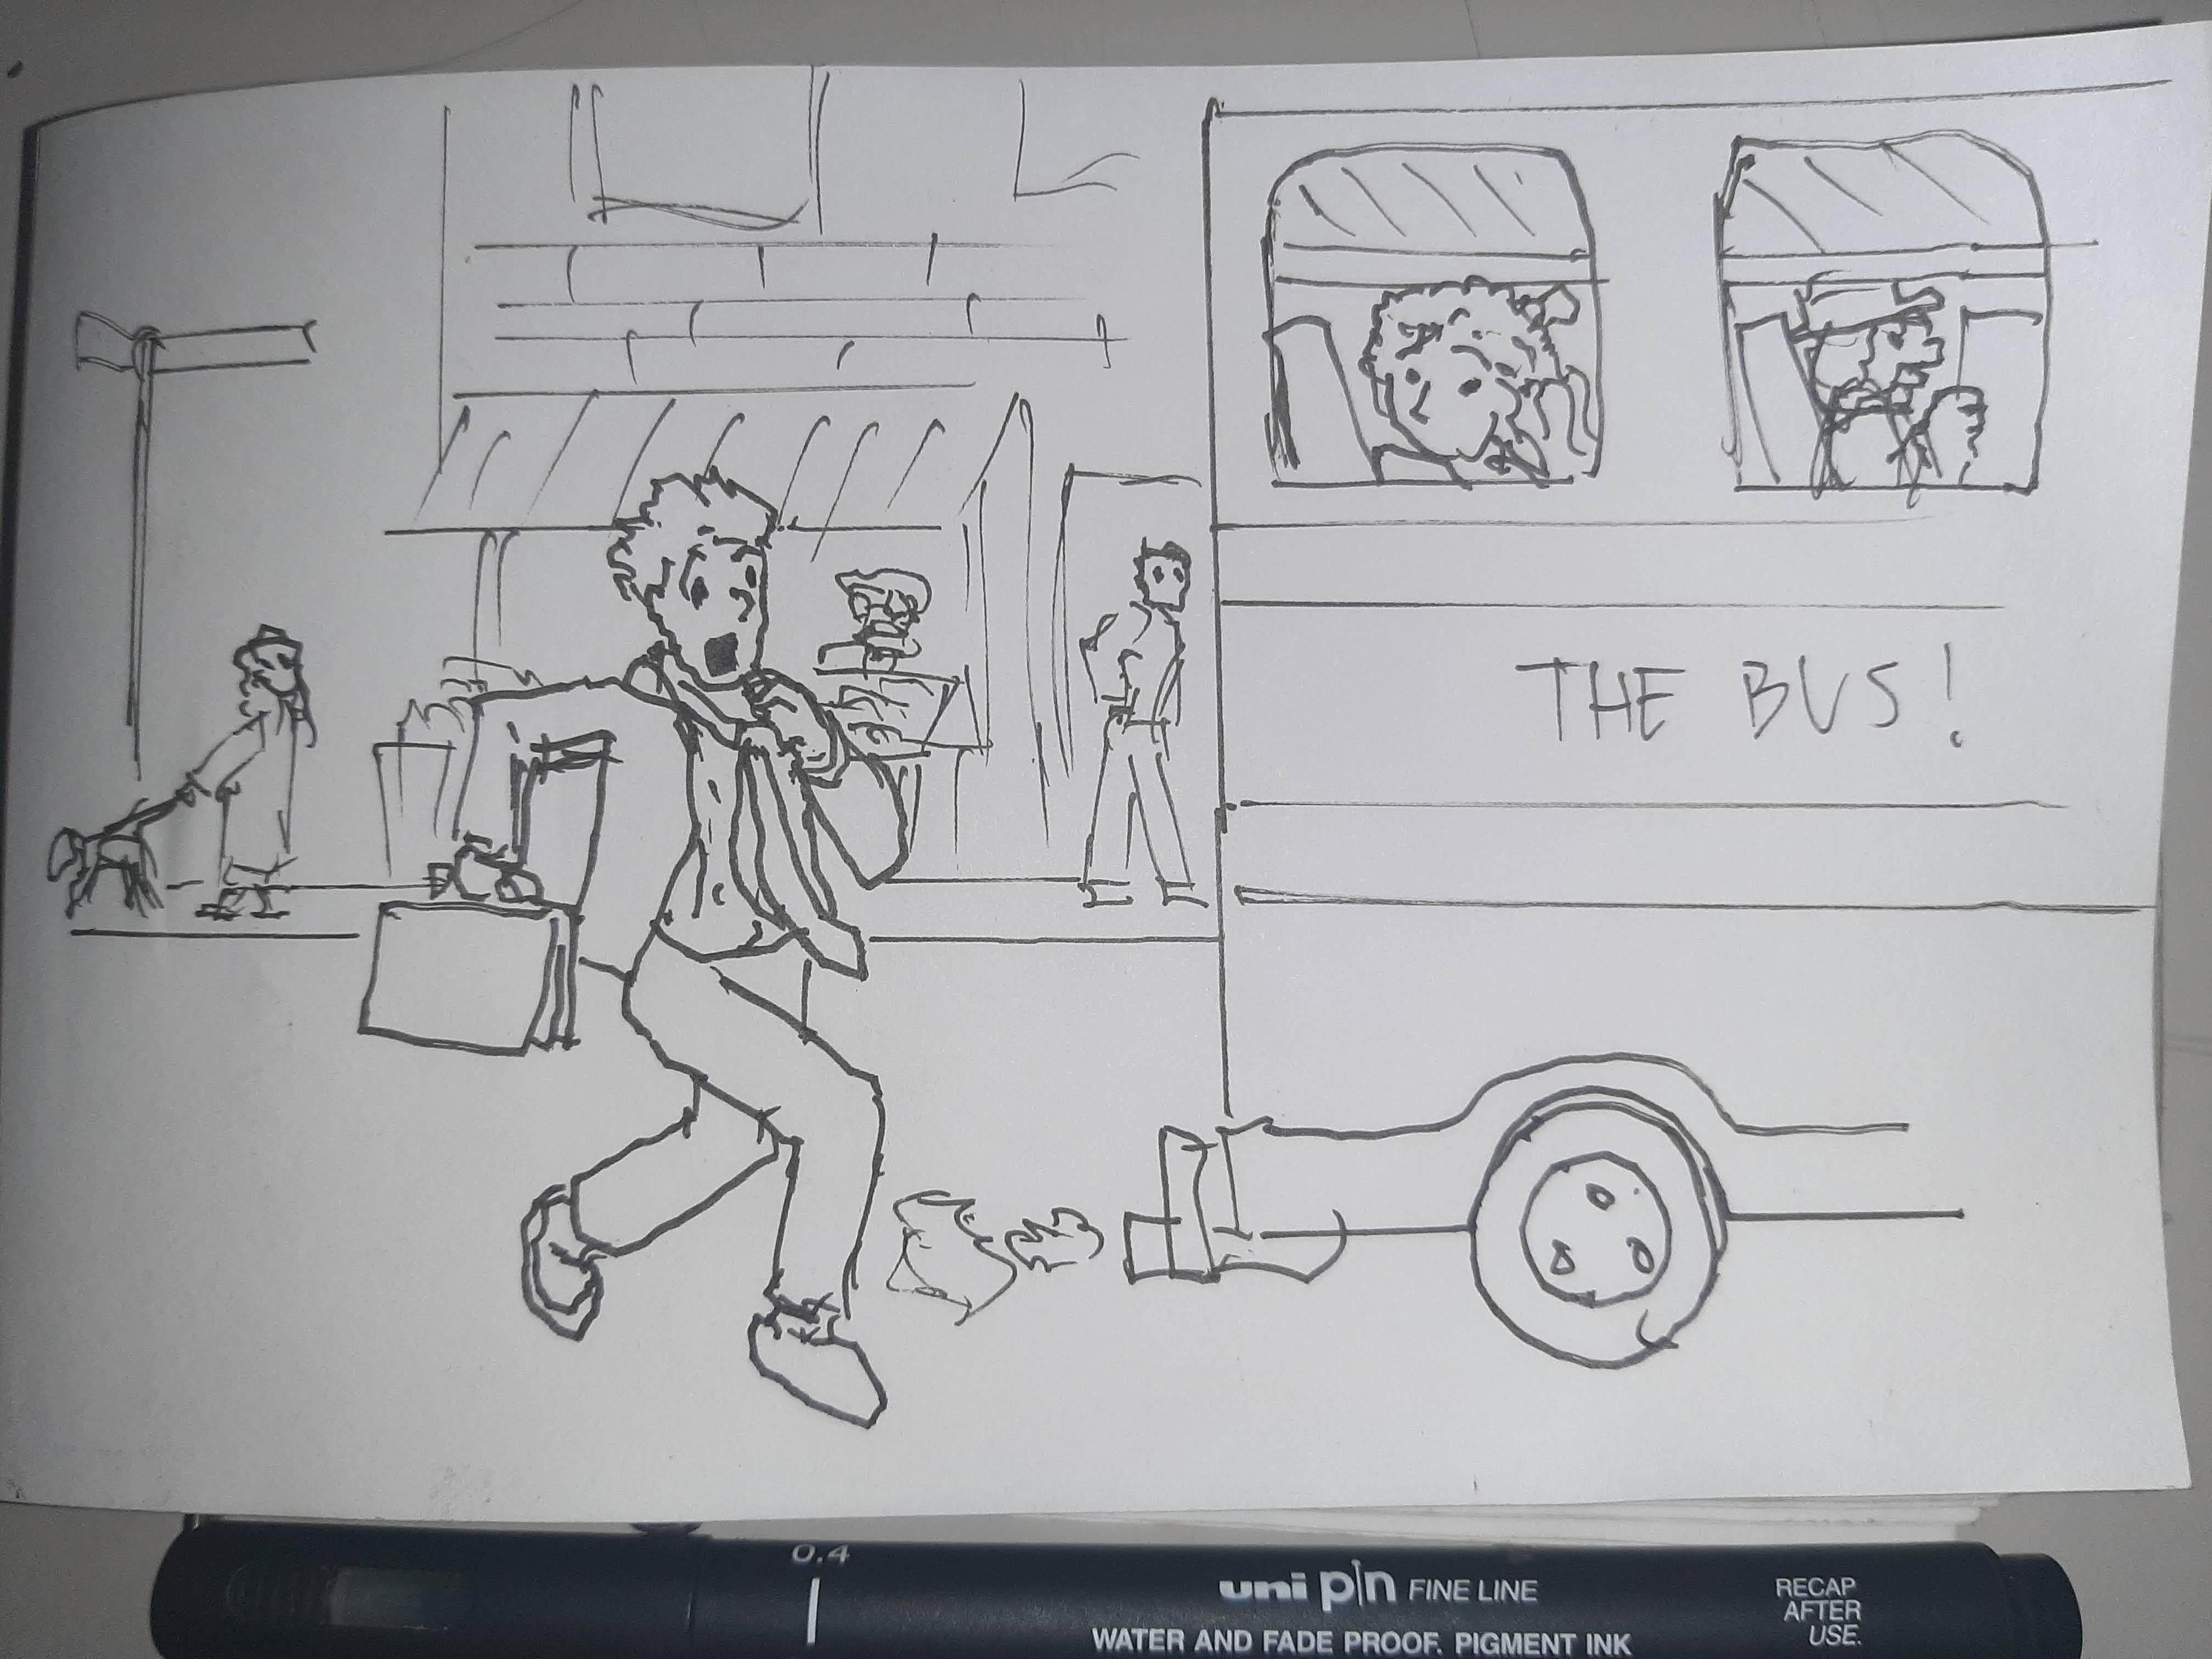 THE BUS!
0.4
uni pin FINE LINE
WATER AND FADE PROOF. PIGMENT INK
RECAP
AFTER
USE.